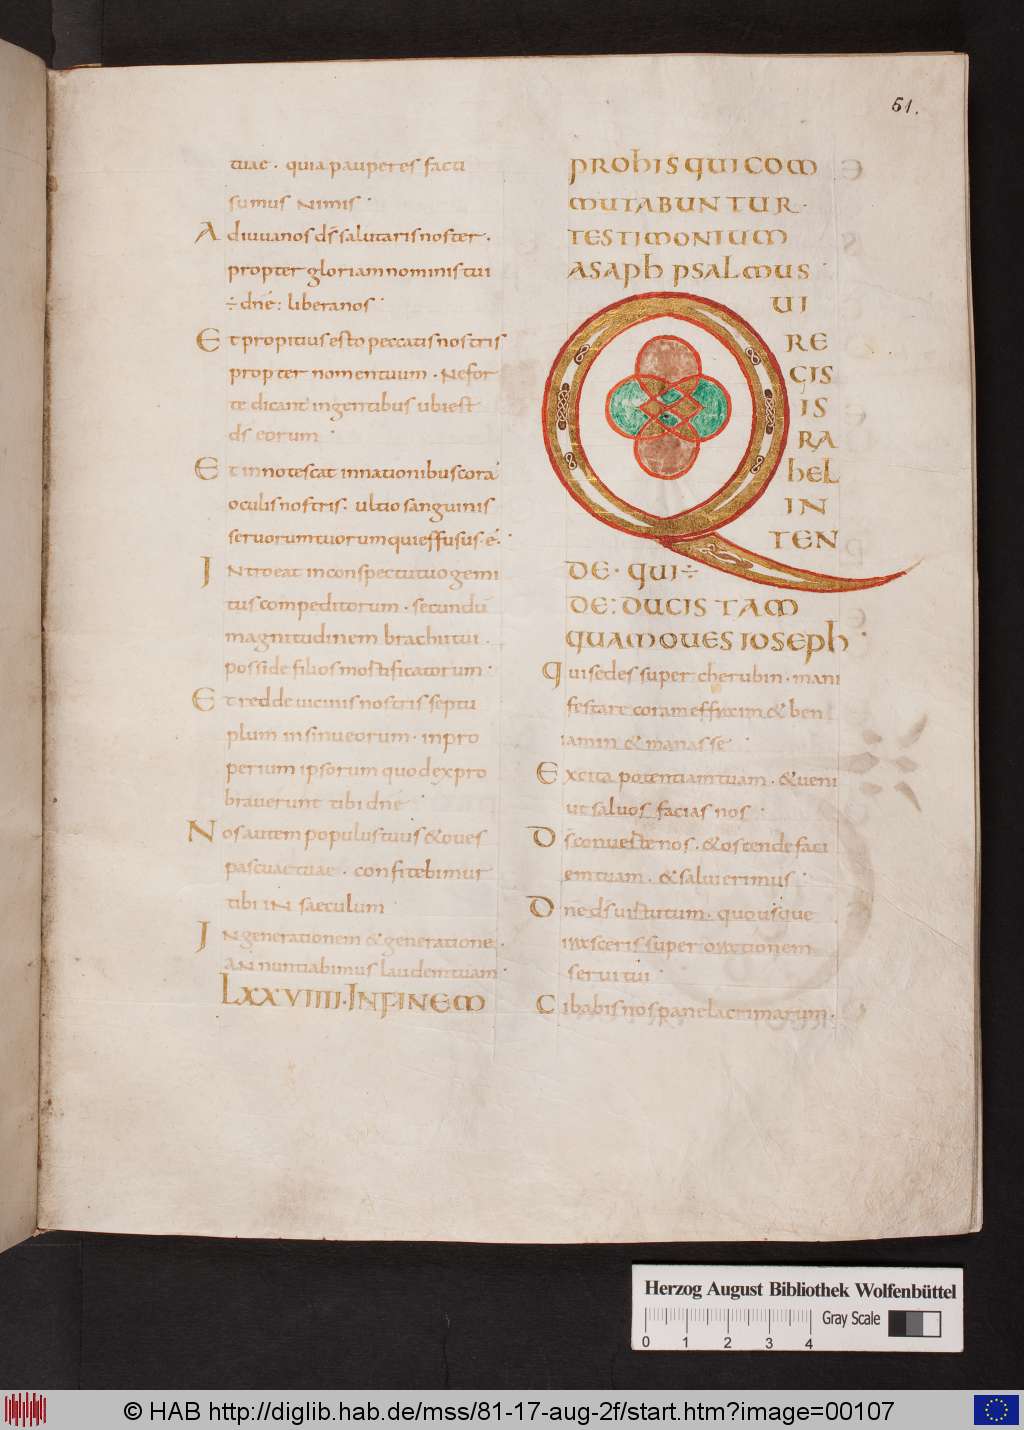 51.
tuae · quia pauperes facti
sumus Nimis ·
Adiuuanos d̄s salutaris noster ·
propter gloriam nominis tui
÷ dn̄e : liberanos ·
Et propitius esto peccatis nostris
propter nomen tuum · Nefor
te dicant in gentibus ubi est
d̄s eorum ·
Et innotescat in nationibus corā
oculis nostris · ultio sanguinis
seruorum tuorum qui effusus · ē ·
INtroeat in conspectu tuo gemi
tus compeditorum · secundū
magnitudinem brachii tui ·
posside filios mortificatorum ·
Et redde uicinis nostris septu
plum in sinu eorum · inpro
perium ipsorum quod expro
brauerunt tibi dn̄e ·
Nos autem populus tuus & oues
pascuae tuae · confitebimur
tibi IN saeculum
IN generationem & generatione ·
ANnuntiabimus laudem tuam ·
LXXVIIII · INFINEM
PROHIS QUI COM
MUTABUNTUR ·
TESTIMONIUM
ASAPH PSALMUS
QUI
RE
GIS
IS
RA
HEL
IN
TEN
DE · QUI ÷
DE : DUCIS TAM
QUAM OUES IOSEPH ·
Qui sedes super cherubin · mani
festare coram effraim & ben
iamin & manasse ·
Excita potentiam tuam · & ueni
ut saluos facias nos ·
D̄s conuerte nos · & ostende faci
em tuam · & salui erimus ·
Dn̄e d̄s uirtutum · quousque
irasceris super orationem
serui tui ·
Cibabis nos pane lacrimarum ·
Herzog August Bibliothek Wolfenbüttel
Gray Scale
0 1 2 3 4
© HAB http://diglib.hab.de/mss/81-17-aug-2f/start.htm?image=00107